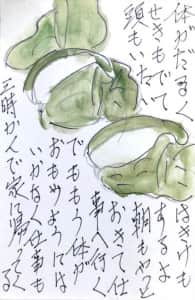 体がだるく
せきもでて
頭もいたい
はきけも
するよ
朝もやっと
おきて仕
事へ行く
でももう体が
おもうようには
いかなく仕事も
三時かんで家に帰ってくる